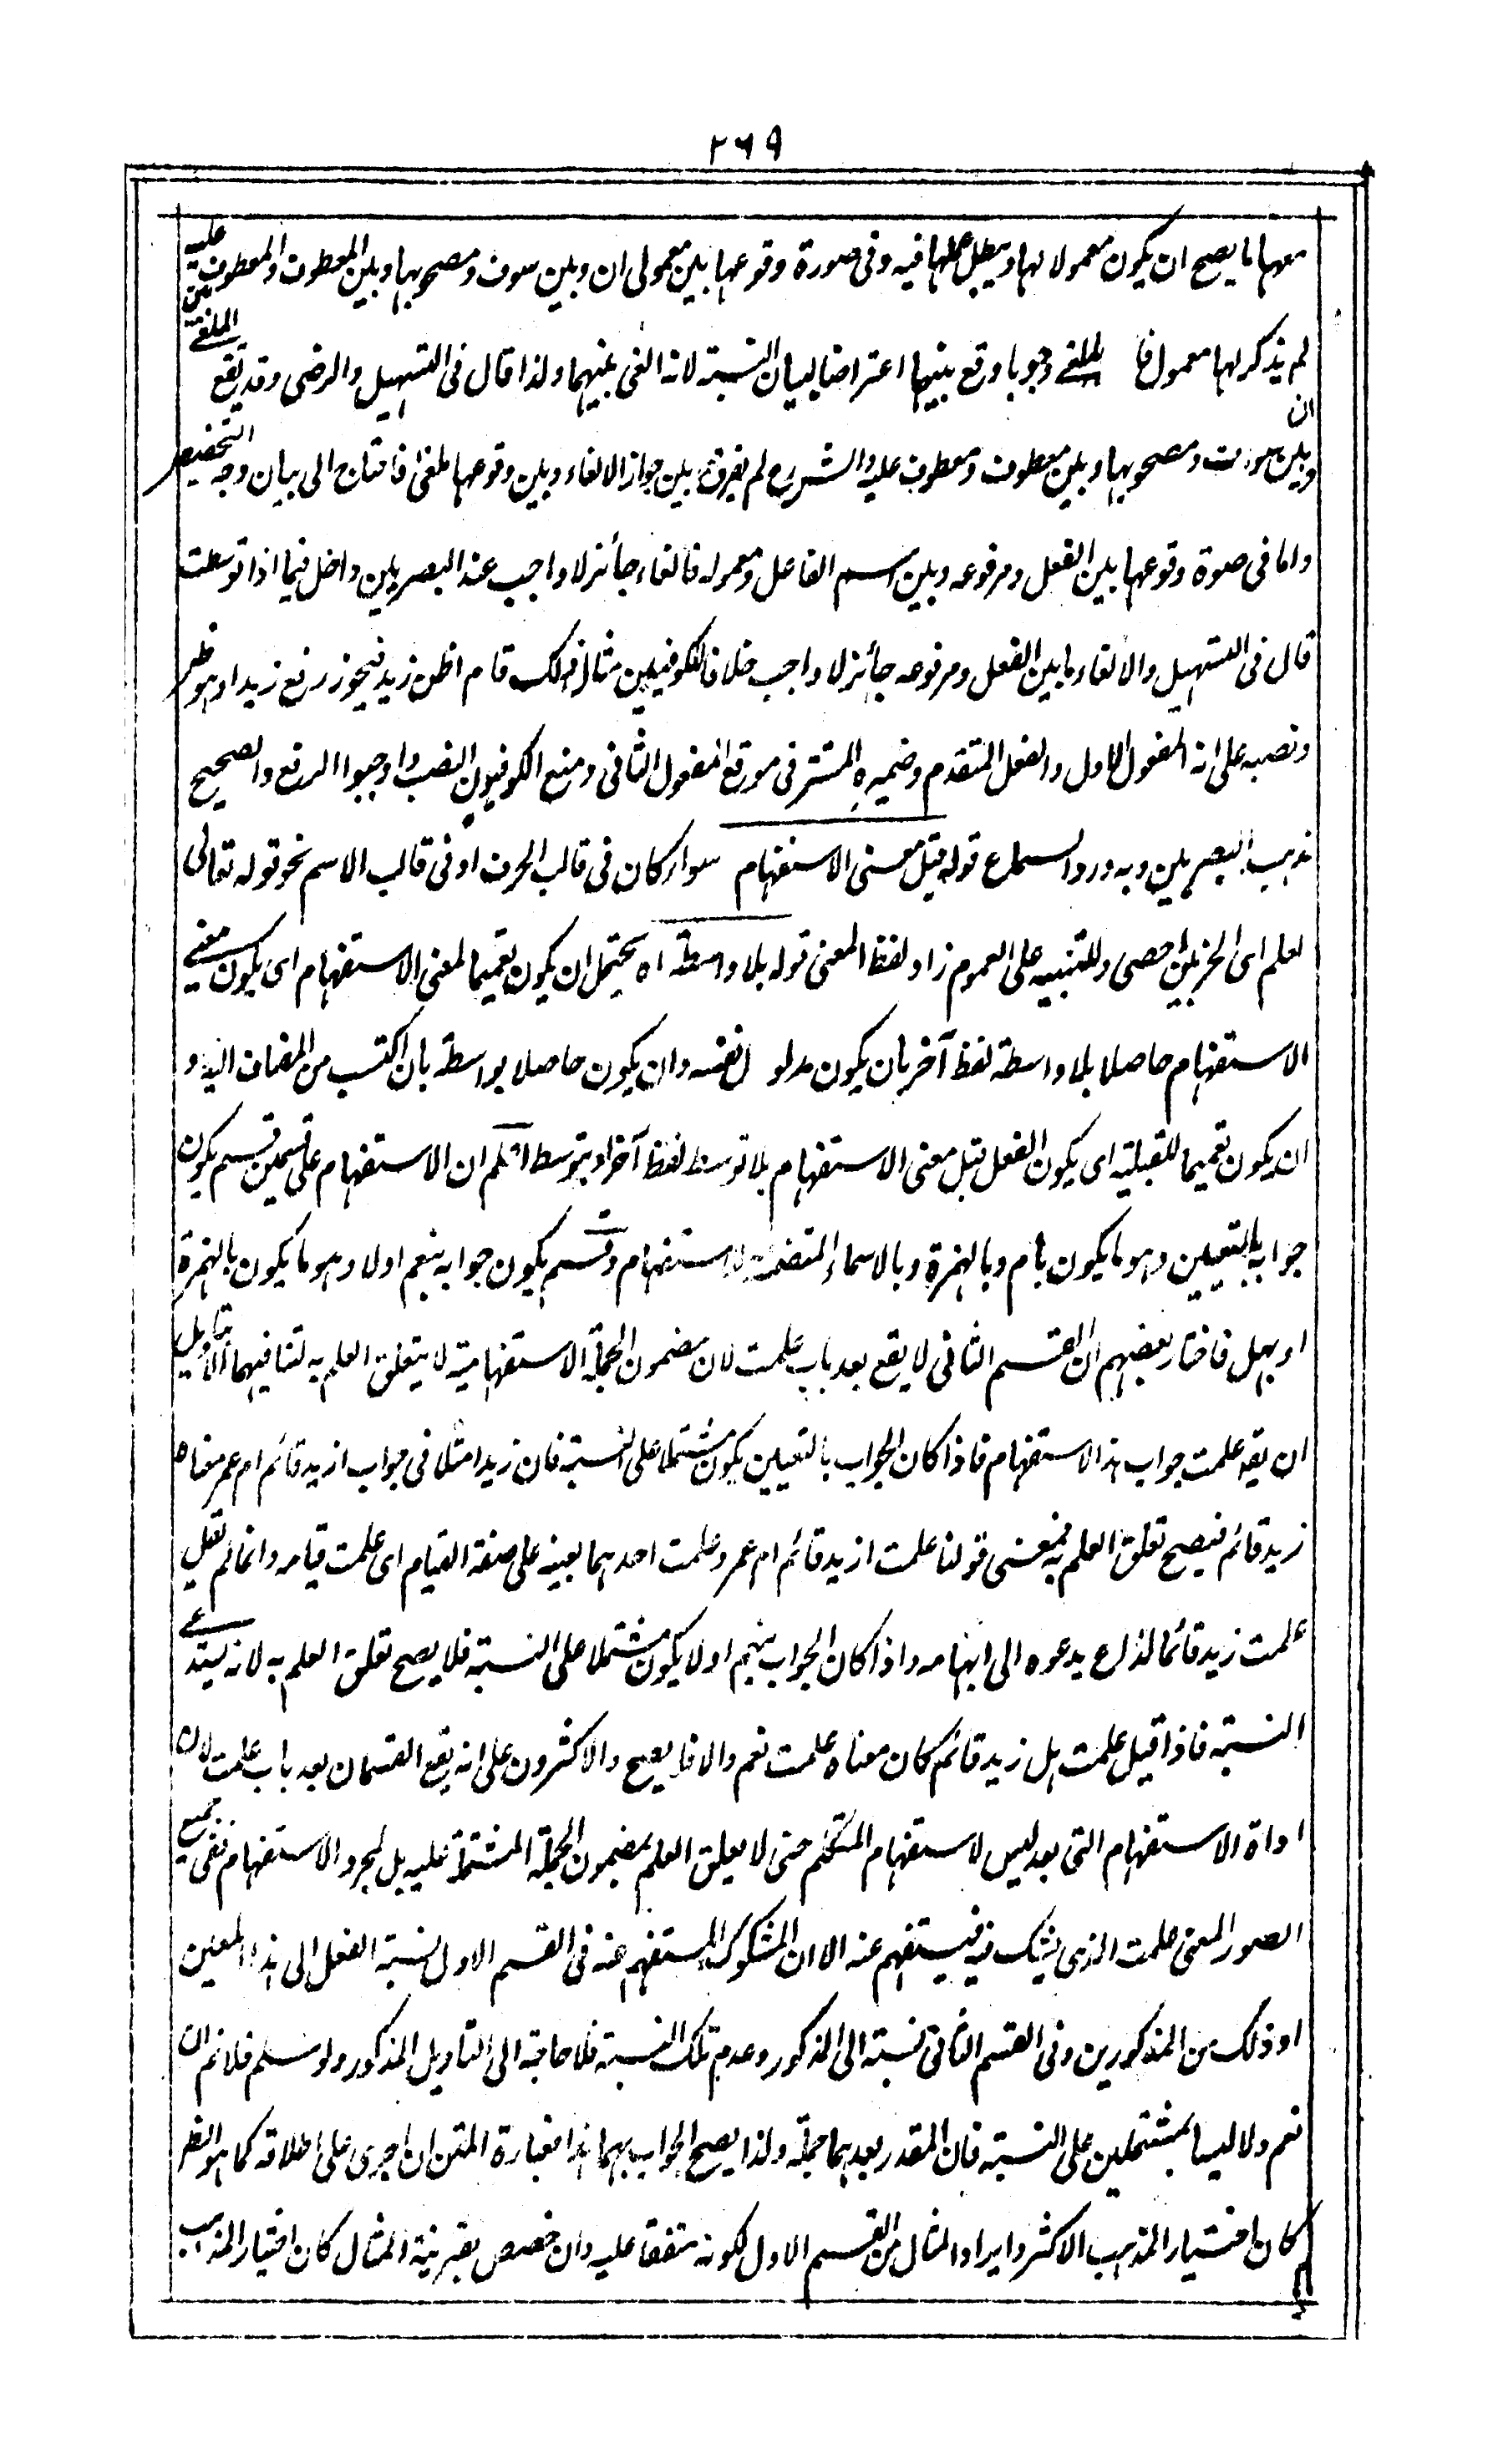 ٢٦٩
معها ما يصح ان يكون معمولا لها ويبطل عملها فيه وفى صورة وقوعها بين معمولى ان وبين سوف ومصحوبها وبين المعطوف والمعطوف عليه
لم يذكر لها معمول فا الملغى وجوبا وقع بينهما اعتراضا لبيان النسبة لانه الغى عنهما ولذا قال فى التسهيل والرضى وقد يقع الملغى بين
ان وبين سوف ومصحوبها وبين معطوف ومعطوف عليه والشارح لم يفرق بين جواز الالغاء وبين وقوعها ملغى فاحتاج الى بيان وجه التخصيص
واما فى صورة وقوعها بين الفعل ومرفوعه وبين اسم الفاعل ومعموله فالغاء جائز لا واجب عند البصريين داخل فيما اذا توسطت
قال فى التسهيل والالغاء ما بين الفعل ومرفوعه جائز لا واجب خلافا للكوفيين مثال ذلك قام اظن زيد فيجوز رفع زيد وهو ظاهر
ونصبه على انه المفعول الاول والفعل المتقدم وضميره المستتر فى موقع المفعول الثانى ومنع الكوفيون النصب واوجبوا الرفع والصحيح
مذهب البصريين وبه ورد السماع قوله قبل معنى الاستفهام سواء كان فى قالب الحرف او فى قالب الاسم نحو قوله تعالى
لعلم اى الحزبين احصى وللتنبيه على العموم زاد لفظ المعنى قوله بلا واسطة اه يحتمل ان يكون تعميما لمعنى الاستفهام اى يكون معنى
الاستفهام حاصلا بلا واسطة لفظ آخر بان يكون مدلول نفسه وان يكون حاصلا بواسطة بان اكتسب من المضاف اليه و
ان يكون تعميما للقبلية اى يكون الفعل قبل معنى الاستفهام بلا توسط لفظ آخر او بتوسط اعلم ان الاستفهام على قسمين قسم يكون
جوابه بالتعيين وهو ما يكون بام وبالهمزة وبالاسماء المتضمنة للاستفهام وقسم يكون جوابه بنعم او لا وهو ما يكون بالهمزة
او بهل فاختار بعضهم ان القسم الثانى لا يقع بعد باب علمت لان مضمون الجملة الاستفهامية لا يتعلق العلم به لتنافيهما الا بتاويل
ان يقه علمت جواب هذا الاستفهام فاذا كان الجواب بالتعيين يكون مشتملا على النسبة فان زيدا مثلا فى جواب ازيد قائم ام عمر معناه
زيد قائم فيصح تعلق العلم به فمعنى قولنا علمت ازيد قائم ام عمرو علمت احدهما بعينه على صفة القيام اى علمت قيامه وانما لم تقل
علمت زيد قائما لداع يدعوه الى ابهامه واذا كان الجواب بنعم او لا يكون مشتملا على النسبة فلا يصح تعلق العلم به لانه يستدعى
النسبة فاذا قيل علمت هل زيد قائم كان معناه علمت نعم والا فلا يصح والاكثرون على انه يقع القسمان بعد باب علمت لان
اداة الاستفهام التى بعد ليس لاستفهام المتكلم حتى لا يعلق العلم بمضمون الجملة المشتملة عليه بل لمجرد الاستفهام ففى جميع
الصور المعنى علمت الذى يشك فيه فيستفهم عنه الا ان المشكوك المستفهم عنه فى القسم الاول نسبة الفعل الى هذا المعين
او ذلك من المذكورين وفى القسم الثانى نسبته الى المذكور وعدم تلك النسبة فلا حاجة الى التاويل المذكور ولو سلم فلا نم ان
نعم ولا ليسا بمشتملين على النسبة فان المقدر بعدهما جملة ولذا يصح الجواب بهما هذا فعبارة المتن ان اجرى على اطلاقه كما هو الظ
كان اختيار المذهب الاكثر وايراد المثال من القسم الاول لكونه متفقا عليه وان خصص بقرينة المثال كان اختيار المذهب